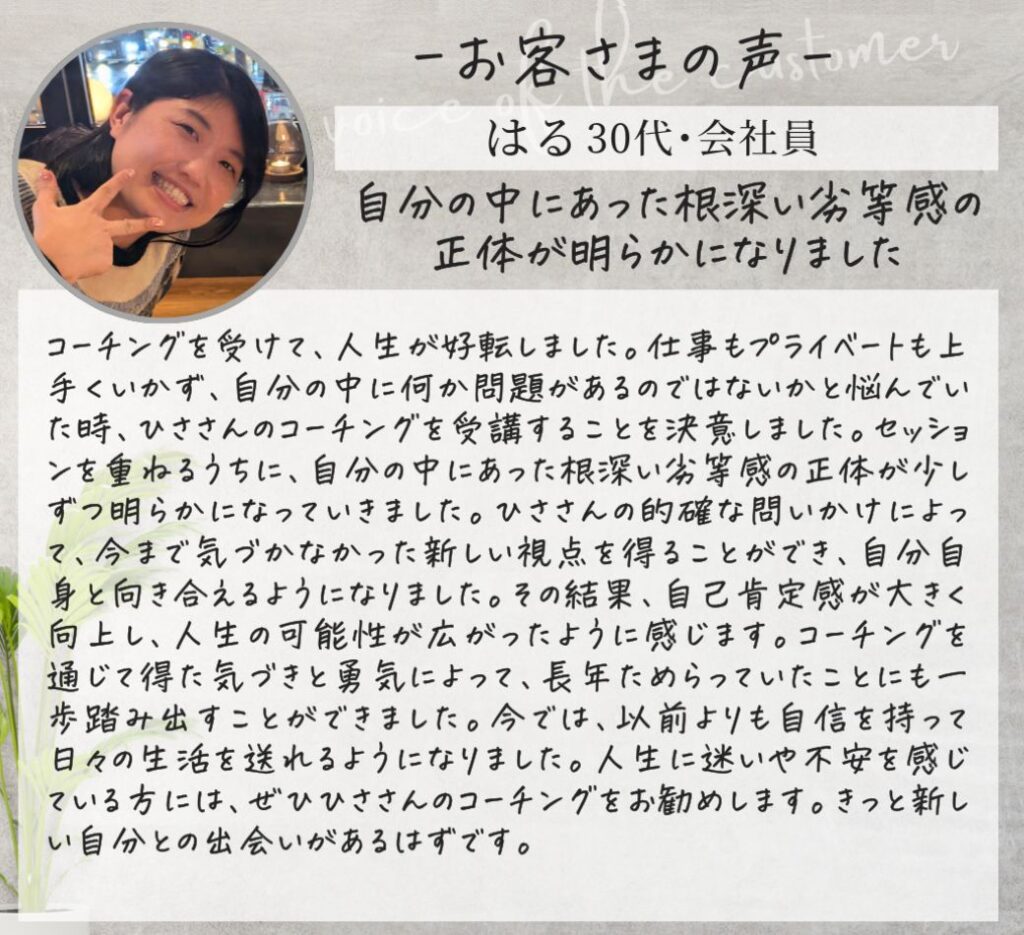 -お客さまの声-
voice of the customer
はる 30代・会社員
自分の中にあった根深い劣等感の
正体が明らかになりました
コーチングを受けて、人生が好転しました。仕事もプライベートも上
手くいかず、自分の中に何か問題があるのではないかと悩んでい
た時、ひささんのコーチングを受講することを決意しました。セッショ
ンを重ねるうちに、自分の中にあった根深い劣等感の正体が少し
ずつ明らかになっていきました。ひささんの的確な問いかけによっ
て、今まで気づかなかった新しい視点を得ることができ、自分自
身と向き合えるようになりました。その結果、自己肯定感が大きく
向上し、人生の可能性が広がったように感じます。コーチングを
通じて得た気づきと勇気によって、長年ためらっていたことにも一
歩踏み出すことができました。今では、以前よりも自信を持って
日々の生活を送れるようになりました。人生に迷いや不安を感じ
ている方には、ぜひひささんのコーチングをお勧めします。きっと新し
い自分との出会いがあるはずです。